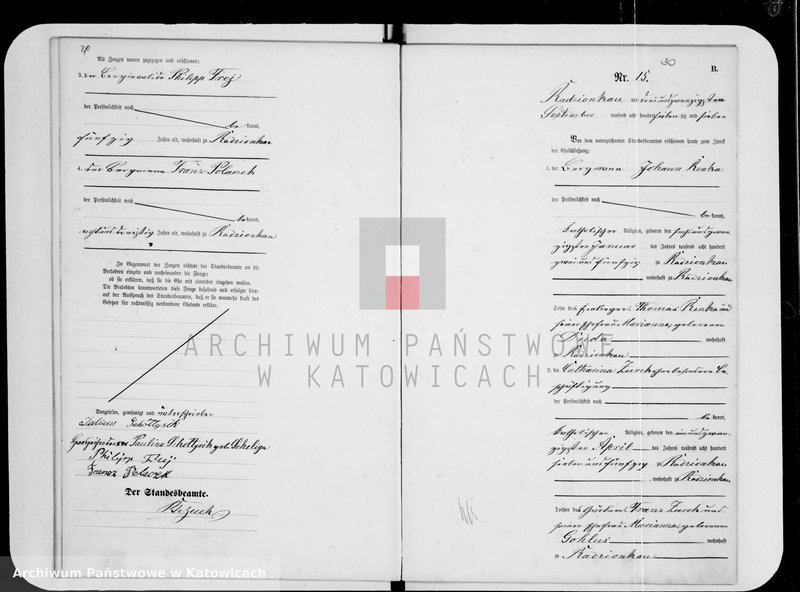 29
Als Zeugen waren zugezogen und erschienen:
3. der Berginvalide Philipp Frej
der Persönlichkeit nach
be kannt,
fünfzig Jahre alt, wohnhaft zu Radzionkau
4. der Bergmann Franz Polaczek
der Persönlichkeit nach
be kannt,
achtunddreißig Jahre alt, wohnhaft zu Radzionkau
In Gegenwart der Zeugen richtete der Standesbeamte an die
Verlobten einzeln und nacheinander die Frage:
ob sie erklären, daß sie die Ehe mit einander eingehen wollen.
Die Verlobten beantworteten diese Frage bejahend und erfolgte hier-
auf der Ausspruch des Standesbeamten, daß er sie nunmehr kraft des
Gesetzes für rechtmäßig verbundene Eheleute erkläre.
Vorgelesen, genehmigt und unterschrieben
Pauline geb.
Philipp Frej
Franz Polaczek
Der Standesbeamte.
30
B.
Nr. 15.
Radzionkau am dreiundzwanzigsten
September tausend acht hundert siebenzig und sieben
Vor dem unterzeichneten Standesbeamten erschienen heute zum Zweck
der Eheschließung:
1. der Bergmann Johann Renka
der Persönlichkeit nach
be kannt,
katholischer Religion, geboren den sechsundzwan-
zigsten Januar des Jahres tausend acht hundert
zweiundfünfzig zu Radzionkau
, wohnhaft zu Radzionkau
Sohn des Einlieger Thomas Renka und
seiner Ehefrau Marianna geborenen
wohnhaft
zu Radzionkau
2. die Catharina Zurek ohne besondere Be-
schäftigung
der Persönlichkeit nach
be kannt,
katholischer Religion, geboren den einundzwan-
zigsten April des Jahres tausend acht hundert
siebenundfünfzig zu Radzionkau
, wohnhaft zu Radzionkau
Tochter des Gärtners Franz Zurek und
seiner Ehefrau Marianna geborenen
Gohlus wohnhaft
zu Radzionkau
ARCHIWUM PAŃSTWOWE
W KATOWICACH
Archiwum Państwowe w Katowicach